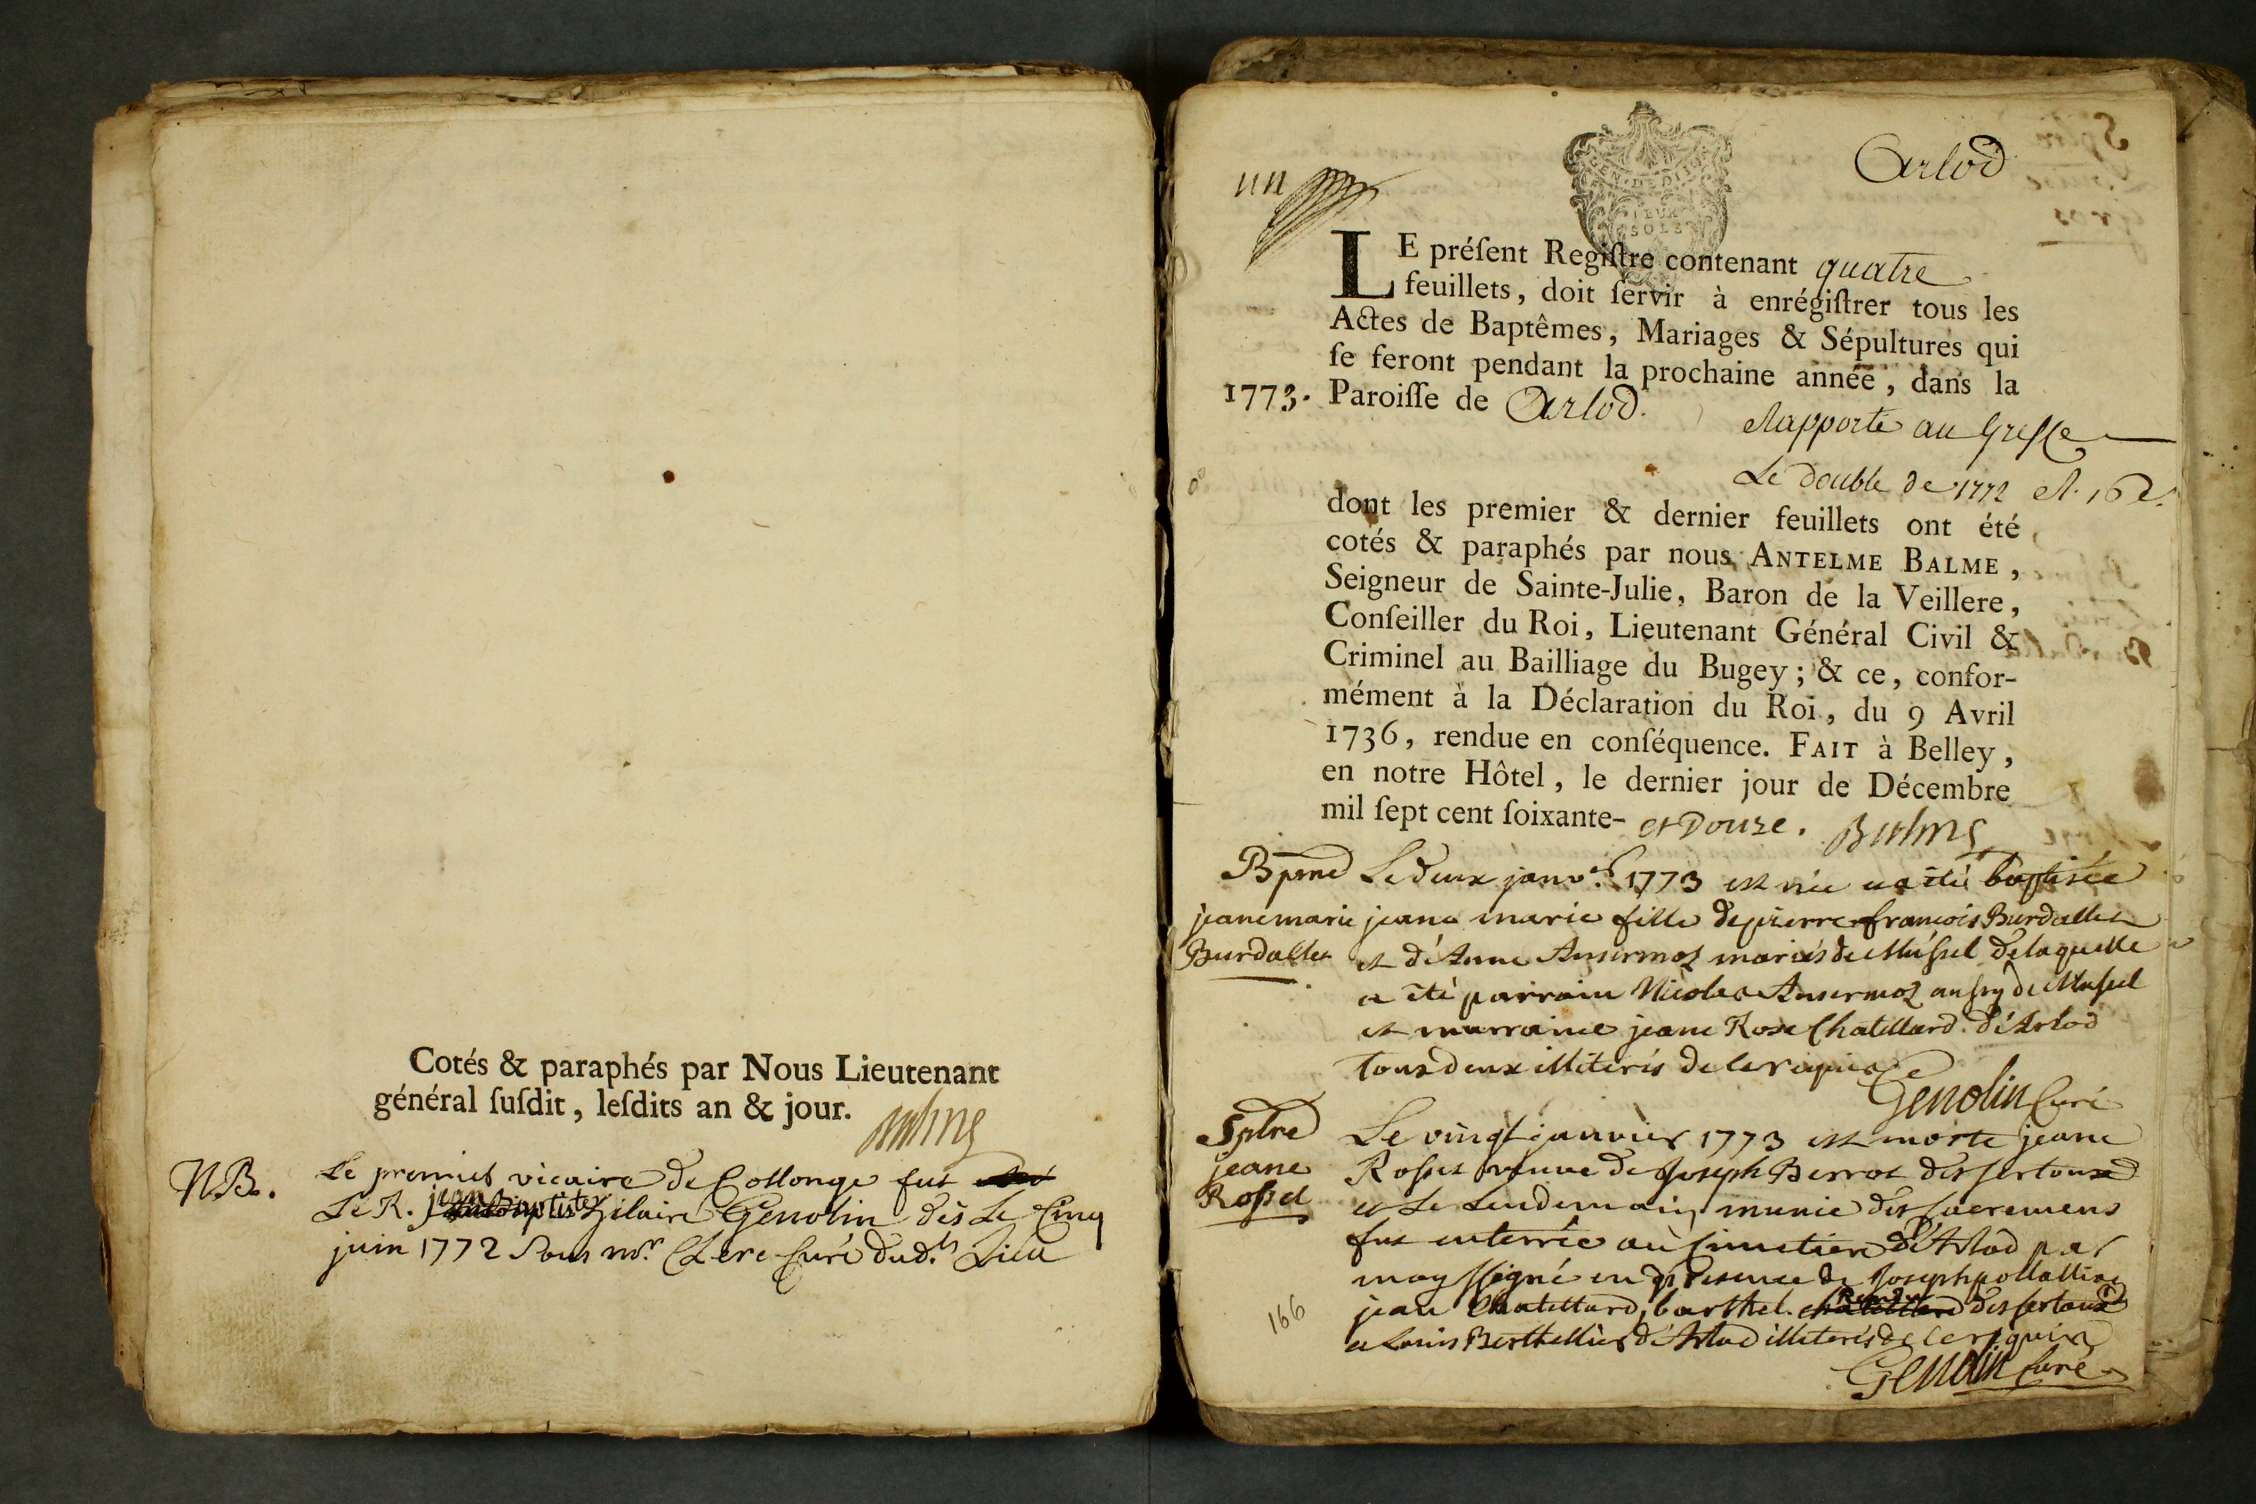 Cotés & paraphés par Nous Lieutenant
général ſuſdit, leſdits an & jour.
N.B. Le premier vicaire de Collonge fut
Le R. jean Baptiste hilaire Genolin dès Le Cinq
juin 1772 Sous mr. Clerc Curé dud.t Lieu
un
Arlod
EN. DE DIJ
DEUX
SOLS
LE préſent Regiſtre contenant quatre
feuillets, doit ſervir à enrégiſtrer tous les
Actes de Baptêmes, Mariages & Sépultures qui
ſe feront pendant la prochaine année, dans la
1773. Paroiſſe de Arlod.
Rapporté au Greffe
Le double de 1772
dont les premier & dernier feuillets ont été
cotés & paraphés par nous ANTELME BALME,
Seigneur de Sainte-Julie, Baron de la Veillere,
Conſeiller du Roi, Lieutenant Général Civil &
Criminel au Bailliage du Bugey; & ce, confor-
mément à la Déclaration du Roi, du 9 Avril
1736, rendue en conſéquence. FAIT à Belley,
en notre Hôtel, le dernier jour de Décembre
mil ſept cent ſoixante- et Douze. Balme
Bpme Le deux janv.er 1773 est née et a été baptisée
jeane marie jeane marie fille de pierre françois Burdallet
Burdallet et d'Anne Ansermoz mariés de Mussel de laquelle
a été parrain Nicolas Ansermoz aussy de Mussel
et marraine jeane Rose Chatillard d'Arlod
tous deux illiterés de ce requis
Genolin Curé
Spltre Le vingt janvier 1773 est morte jeane
jeane Rosset veuve de Joseph Berrot des sertoux
Rosset et Le Lendemain munie des sacremens
fut enterrée au Cimetiere d'Arlod par
moy ssigné en présence de Joseph pollallion
jean Chatillard, barthel. des sertoux
et Louis Berthellier d'Arlod illiterés de ce requis
Genolin Curé
166